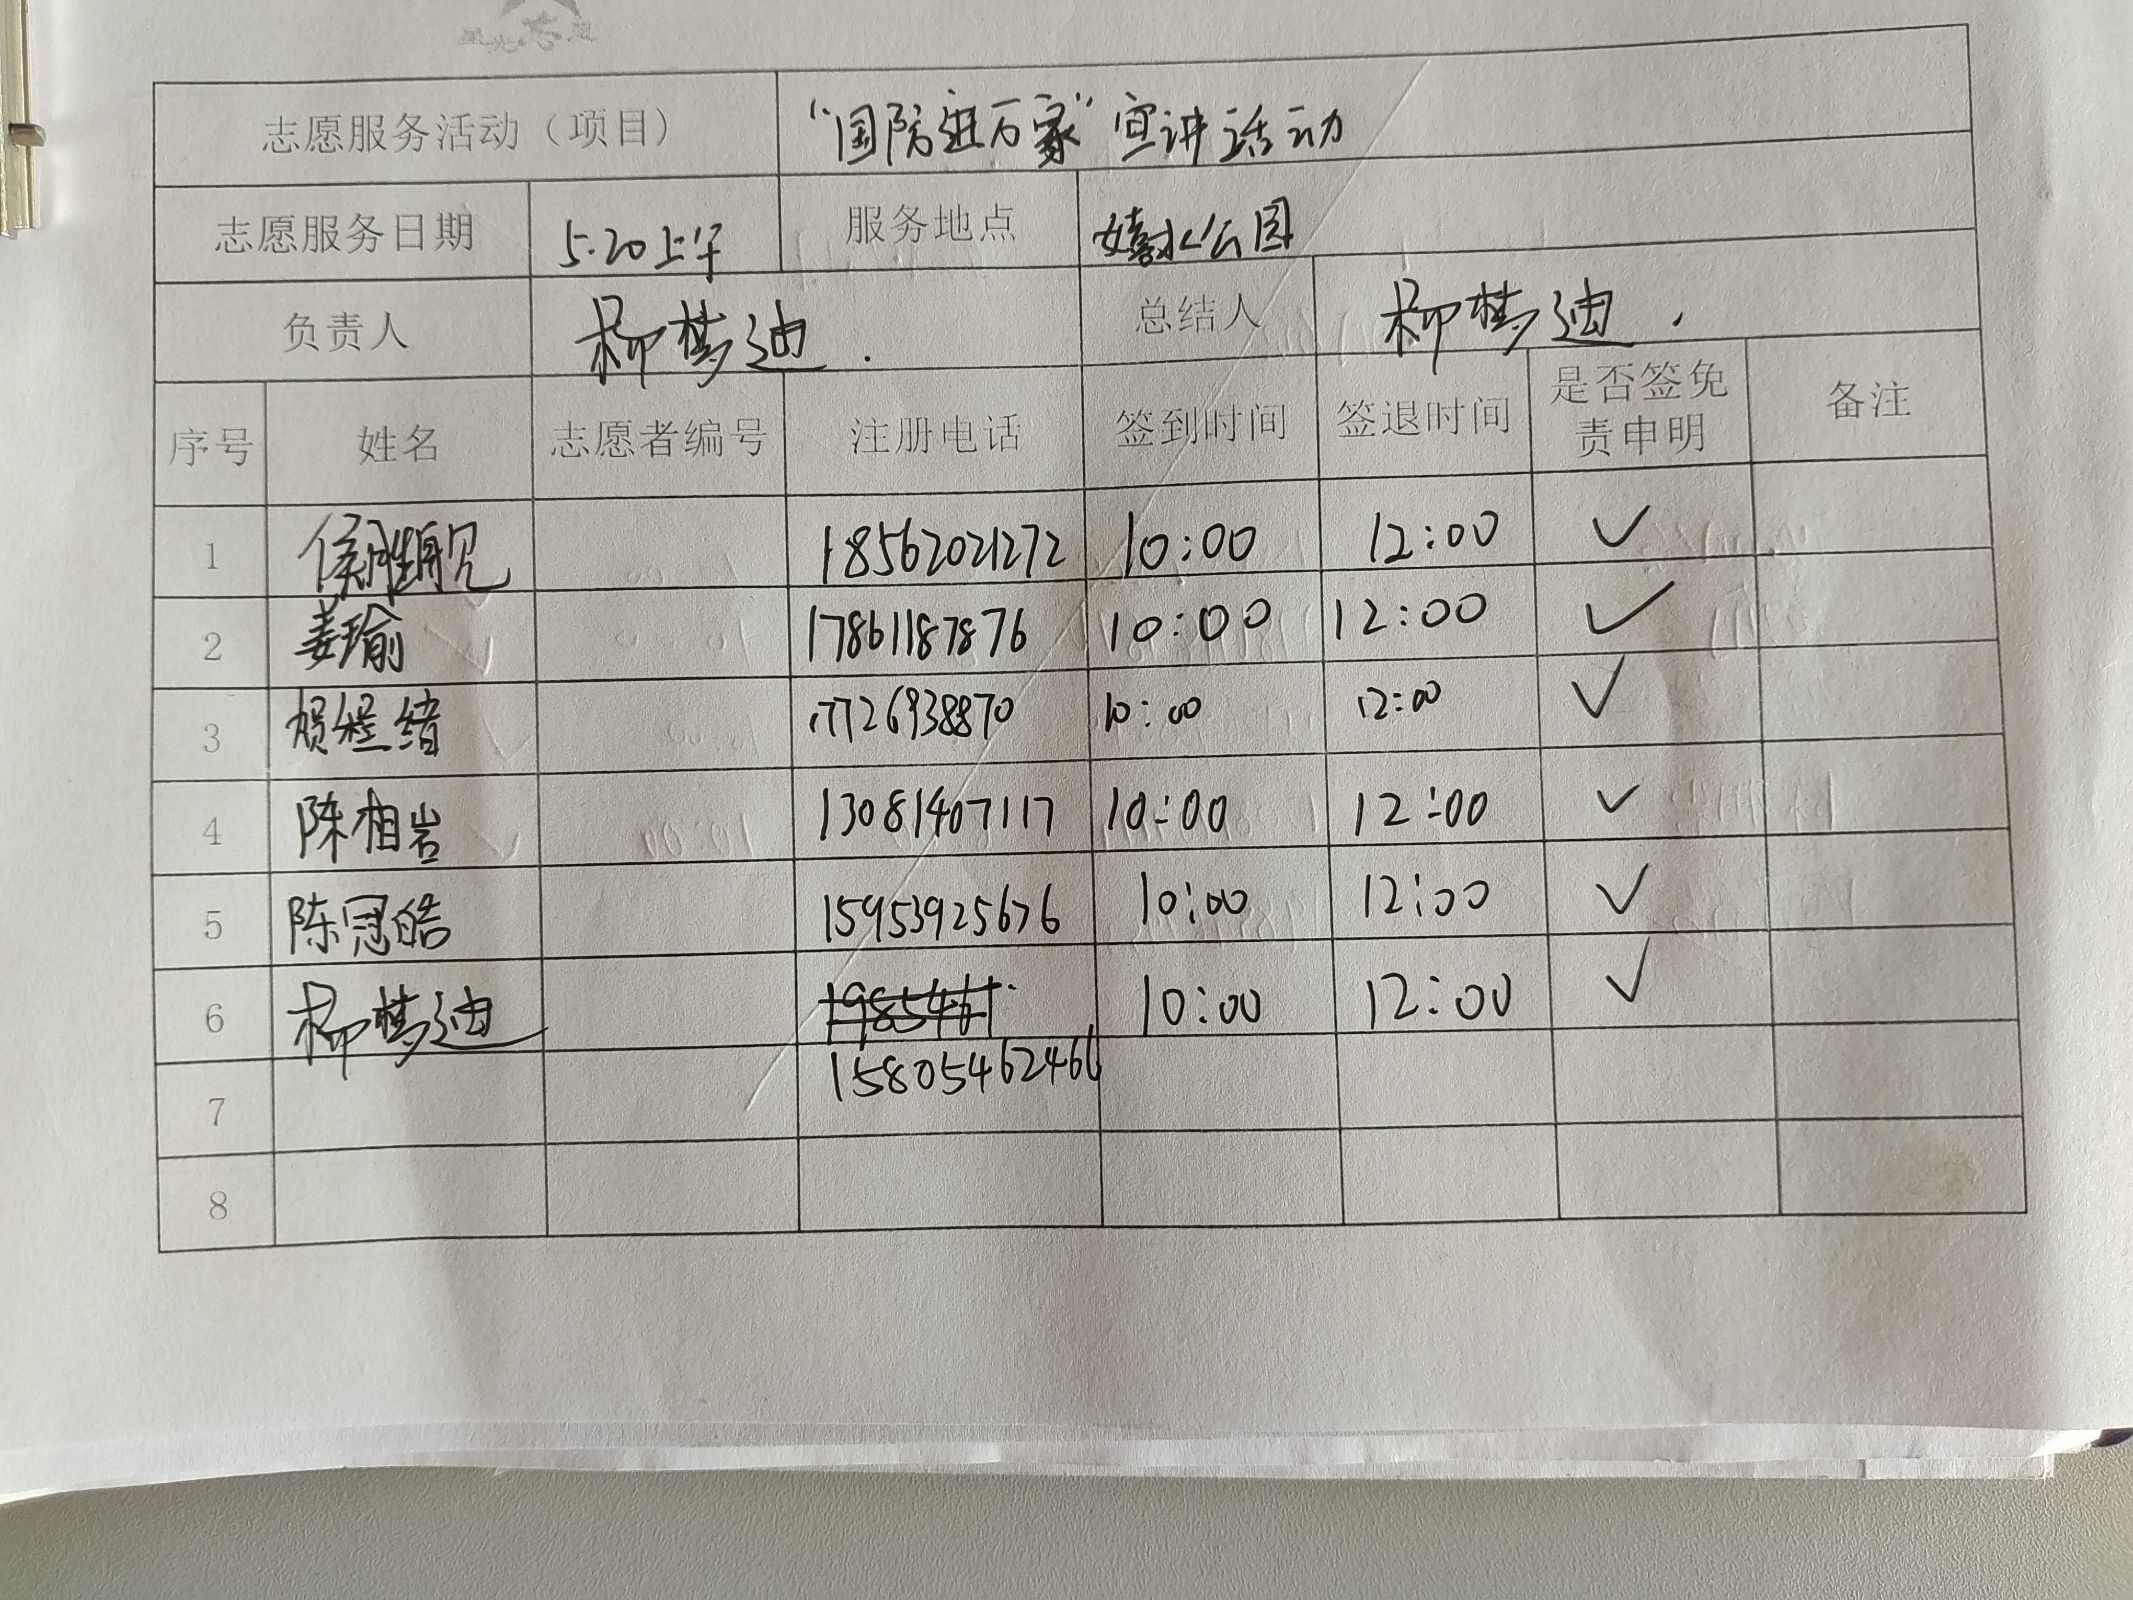 志愿服务活动（项目） “国防进万家”宣讲活动
志愿服务日期 5.20上午 服务地点 嬉水公园
负责人 柳梦迪. 总结人 柳梦迪.
序号 姓名 志愿者编号 注册电话 签到时间 签退时间 是否签免责申明 备注
1 18562021272 10:00 12:00 ✓
2 姜瑜 17861187876 10:00 12:00 ✓
3 17726938870 10:00 12:00 ✓
4 陈相岩 13081407117 10:00 12:00 ✓
5 陈冠皓 15953925676 10:00 12:00 ✓
6 柳梦迪 10:00 12:00 ✓
7 15805462466
8